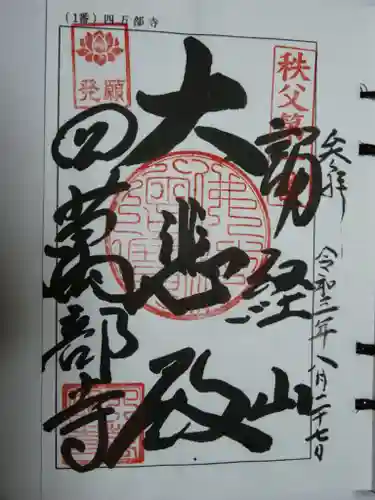 (1番)四万部寺
秩父第
参拝
令和二年八月二十七日
誦経山
大悲殿
発願
四萬部寺